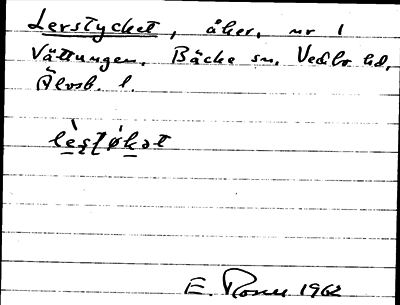 Lerstycket, åker, nr 1
Vättungen. Bäcke sn. Vedbo hd,
Älvsb. l.
E. Rosell 1962